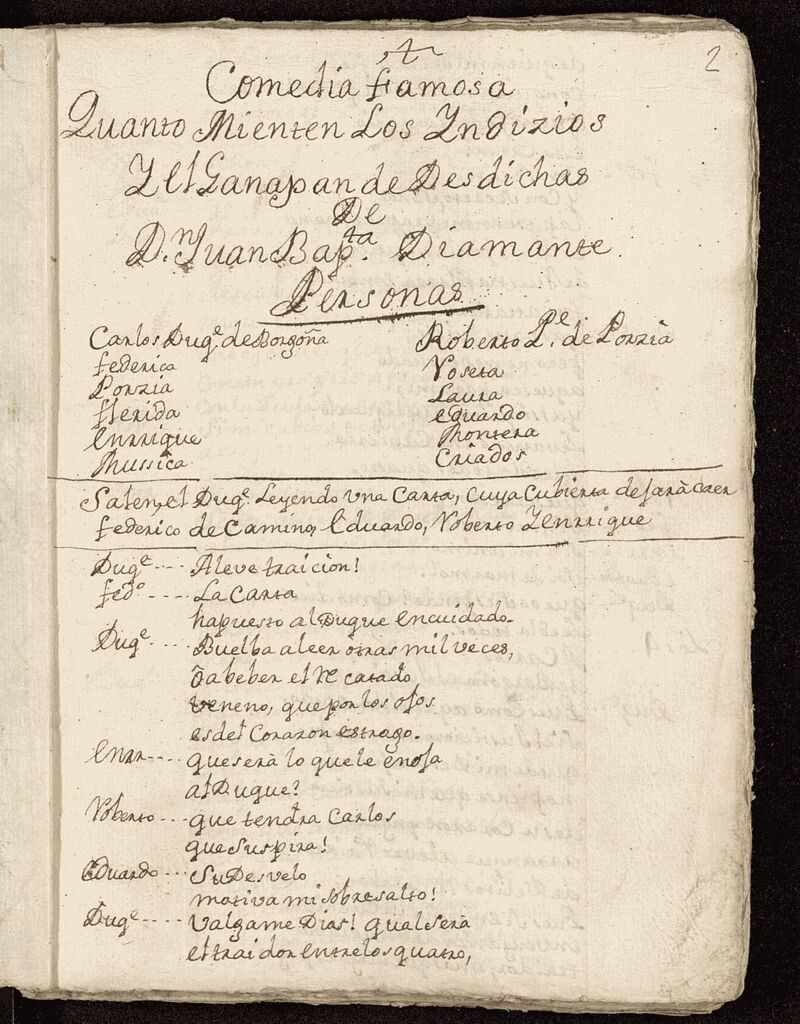 2
Comedia famosa
Quanto Mienten Los Yndizios
Y el Ganapan de Desdichas
De
D.n Juan Bap.ta Diamante
Personas
Carlos Duq.e de Borgoña
Roberto P.e de Porzia
federico
Roseta
Porzia
Laura
flerida
eduardo
enrrique
Montera
Mussica
Criados
Salen, el Duq.e Leyendo vna Carta, cuya Cubierta dejarà caer
federico de Camino, Eduardo, Roberto Y Enrrique
Duq.e ---- Aleve traicion!
fed.o ---- La Carta
ha puesto al Duque en cuidado.
Duq.e --- Buelba a leer otras mil veces,
ò a beber el re catado
veneno, que por los ojos
es del Corazon estrago.
enrr---- que serà lo que le enoja
al Duque?
Roberto --- que tendra Carlos
que suspira!
Eduardo --- Su Desvelo
motiva mi sobresalto!
Duq.e ---- Valgame Dias! qual serà
el traidor entre los quatro,